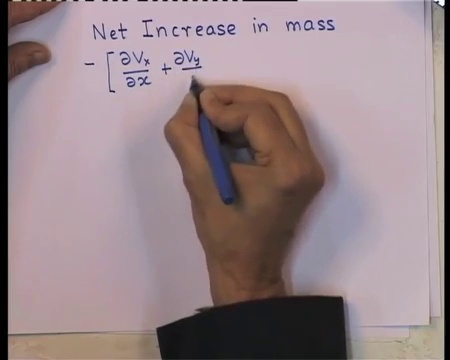 Net Increase in mass
- [ ∂Vx/∂x + ∂Vy/